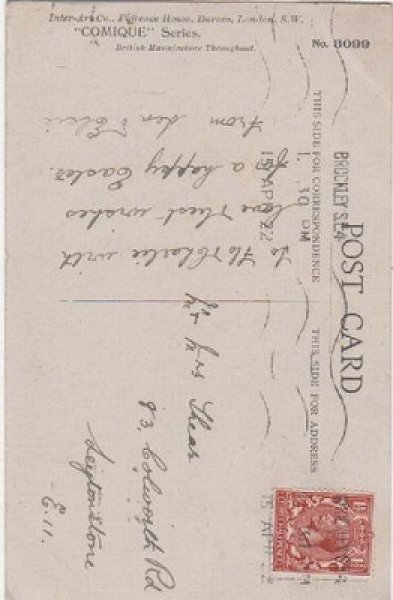 Inter-Art Co., Florence House, Barnes, London, S.W.
"COMIQUE" Series.
British Manufacture Throughout.
No. 3099
POST CARD
THIS SIDE FOR CORRESPONDENCE
THIS SIDE FOR ADDRESS
BROCKLEY S.E.4
1. 30 PM
15 APR 22
To Flo & Charlie with
love & best wishes
for a happy Easter.
from Len &
Mr & Mrs Shear
93, Colworth Rd
Leytonstone
E.11.
15 APR 22